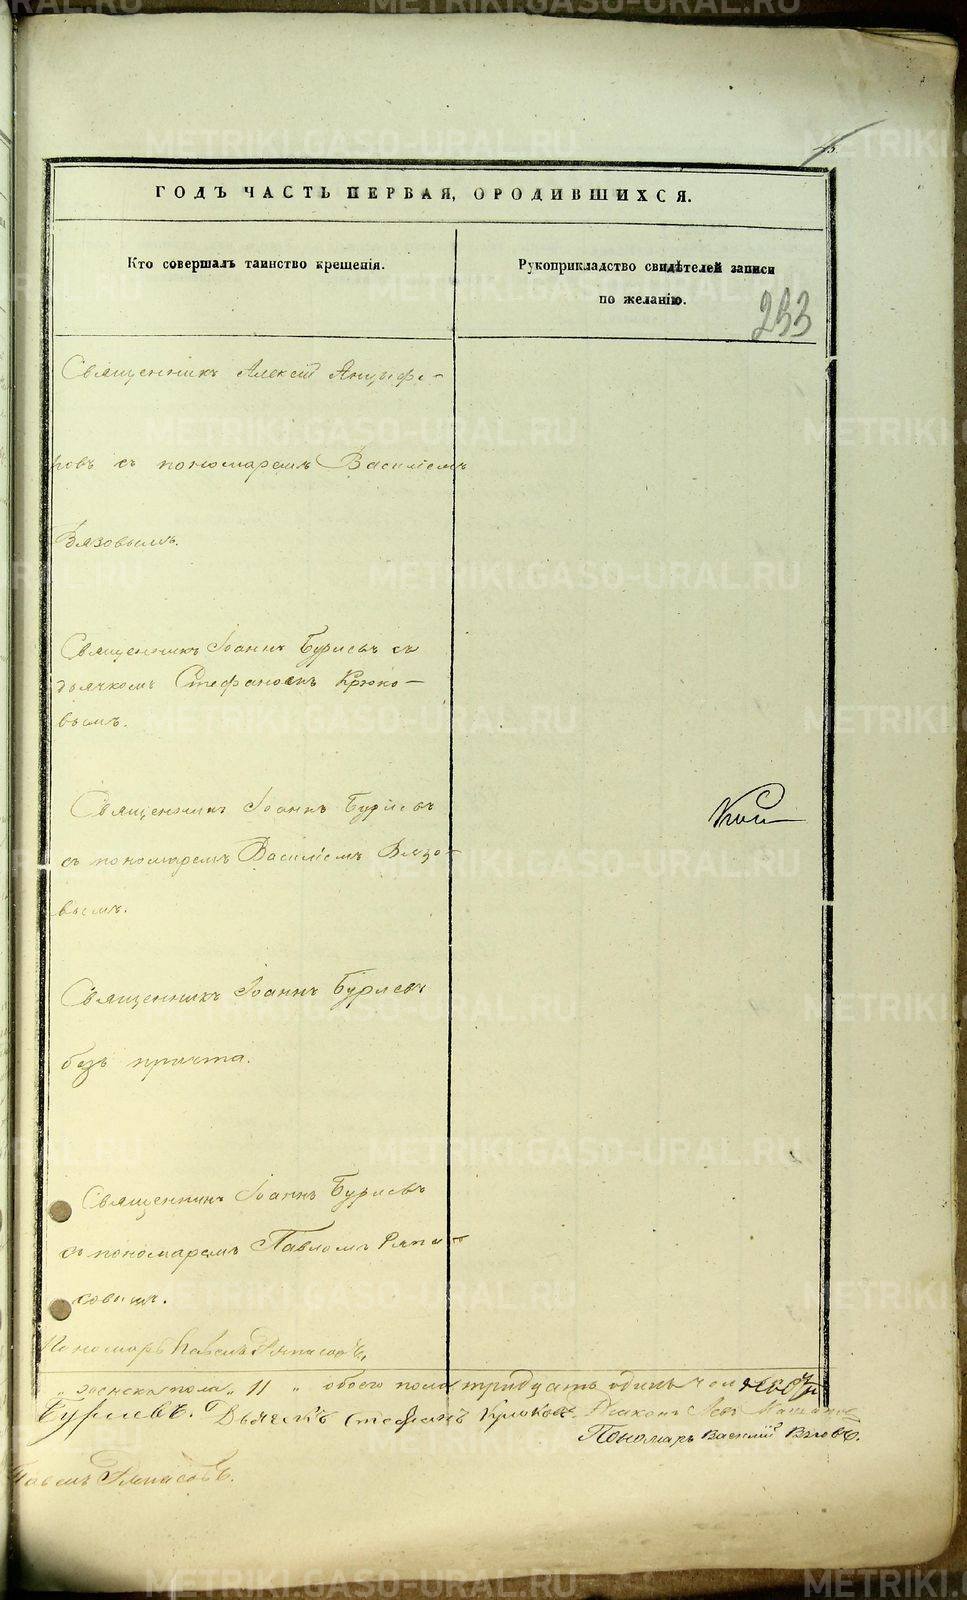 ГОДЪ ЧАСТЬ ПЕРВАЯ, О РОДИВШИХСЯ.
Кто совершалъ таинство крещенія.
Рукоприкладство свидѣтелей записи
по желанію.
233
Священникъ Алексій Анцыфе-
ровъ съ пономаремъ Василіемъ
Вязовымъ.
Священникъ Іоаннъ Бурлевъ съ
дьячкомъ Стефаномъ Крюко-
вымъ.
Священникъ Іоаннъ Бурлевъ
съ пономаремъ Василіемъ Вязо-
вымъ.
Священникъ Іоаннъ Бурлевъ
безъ причта.
Священникъ Іоаннъ Бурлевъ
съ пономаремъ Павломъ Ряпа-
совымъ.
Пономарь Павелъ Ряпасовъ,
„ женска пола „ 11 „ обоего пола тридцать одинъ
Бурлевъ. Дьячекъ Стефанъ Крюковъ. Дьяконъ Левъ
Пономарь Василій Вязовъ.
Павелъ Ряпасовъ.
METRIKI.GASO-URAL.RU